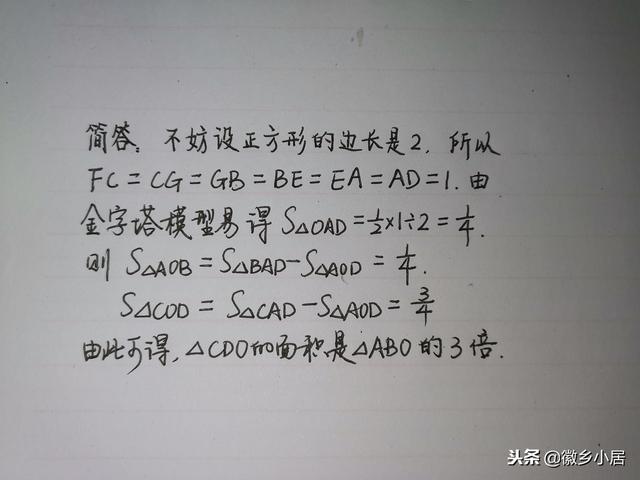 简答：不妨设正方形的边长是2，所以
FC=CG=GB=BE=EA=AD=1.由
金字塔模型易得S△OAD=½×1÷2=¼.
则 S△AOB=S△BAD-S△AOD=¼.
S△COD=S△CAD-S△AOD=¾
由此可得,△CDO的面积是△ABO的3倍.
头条@徽乡小居